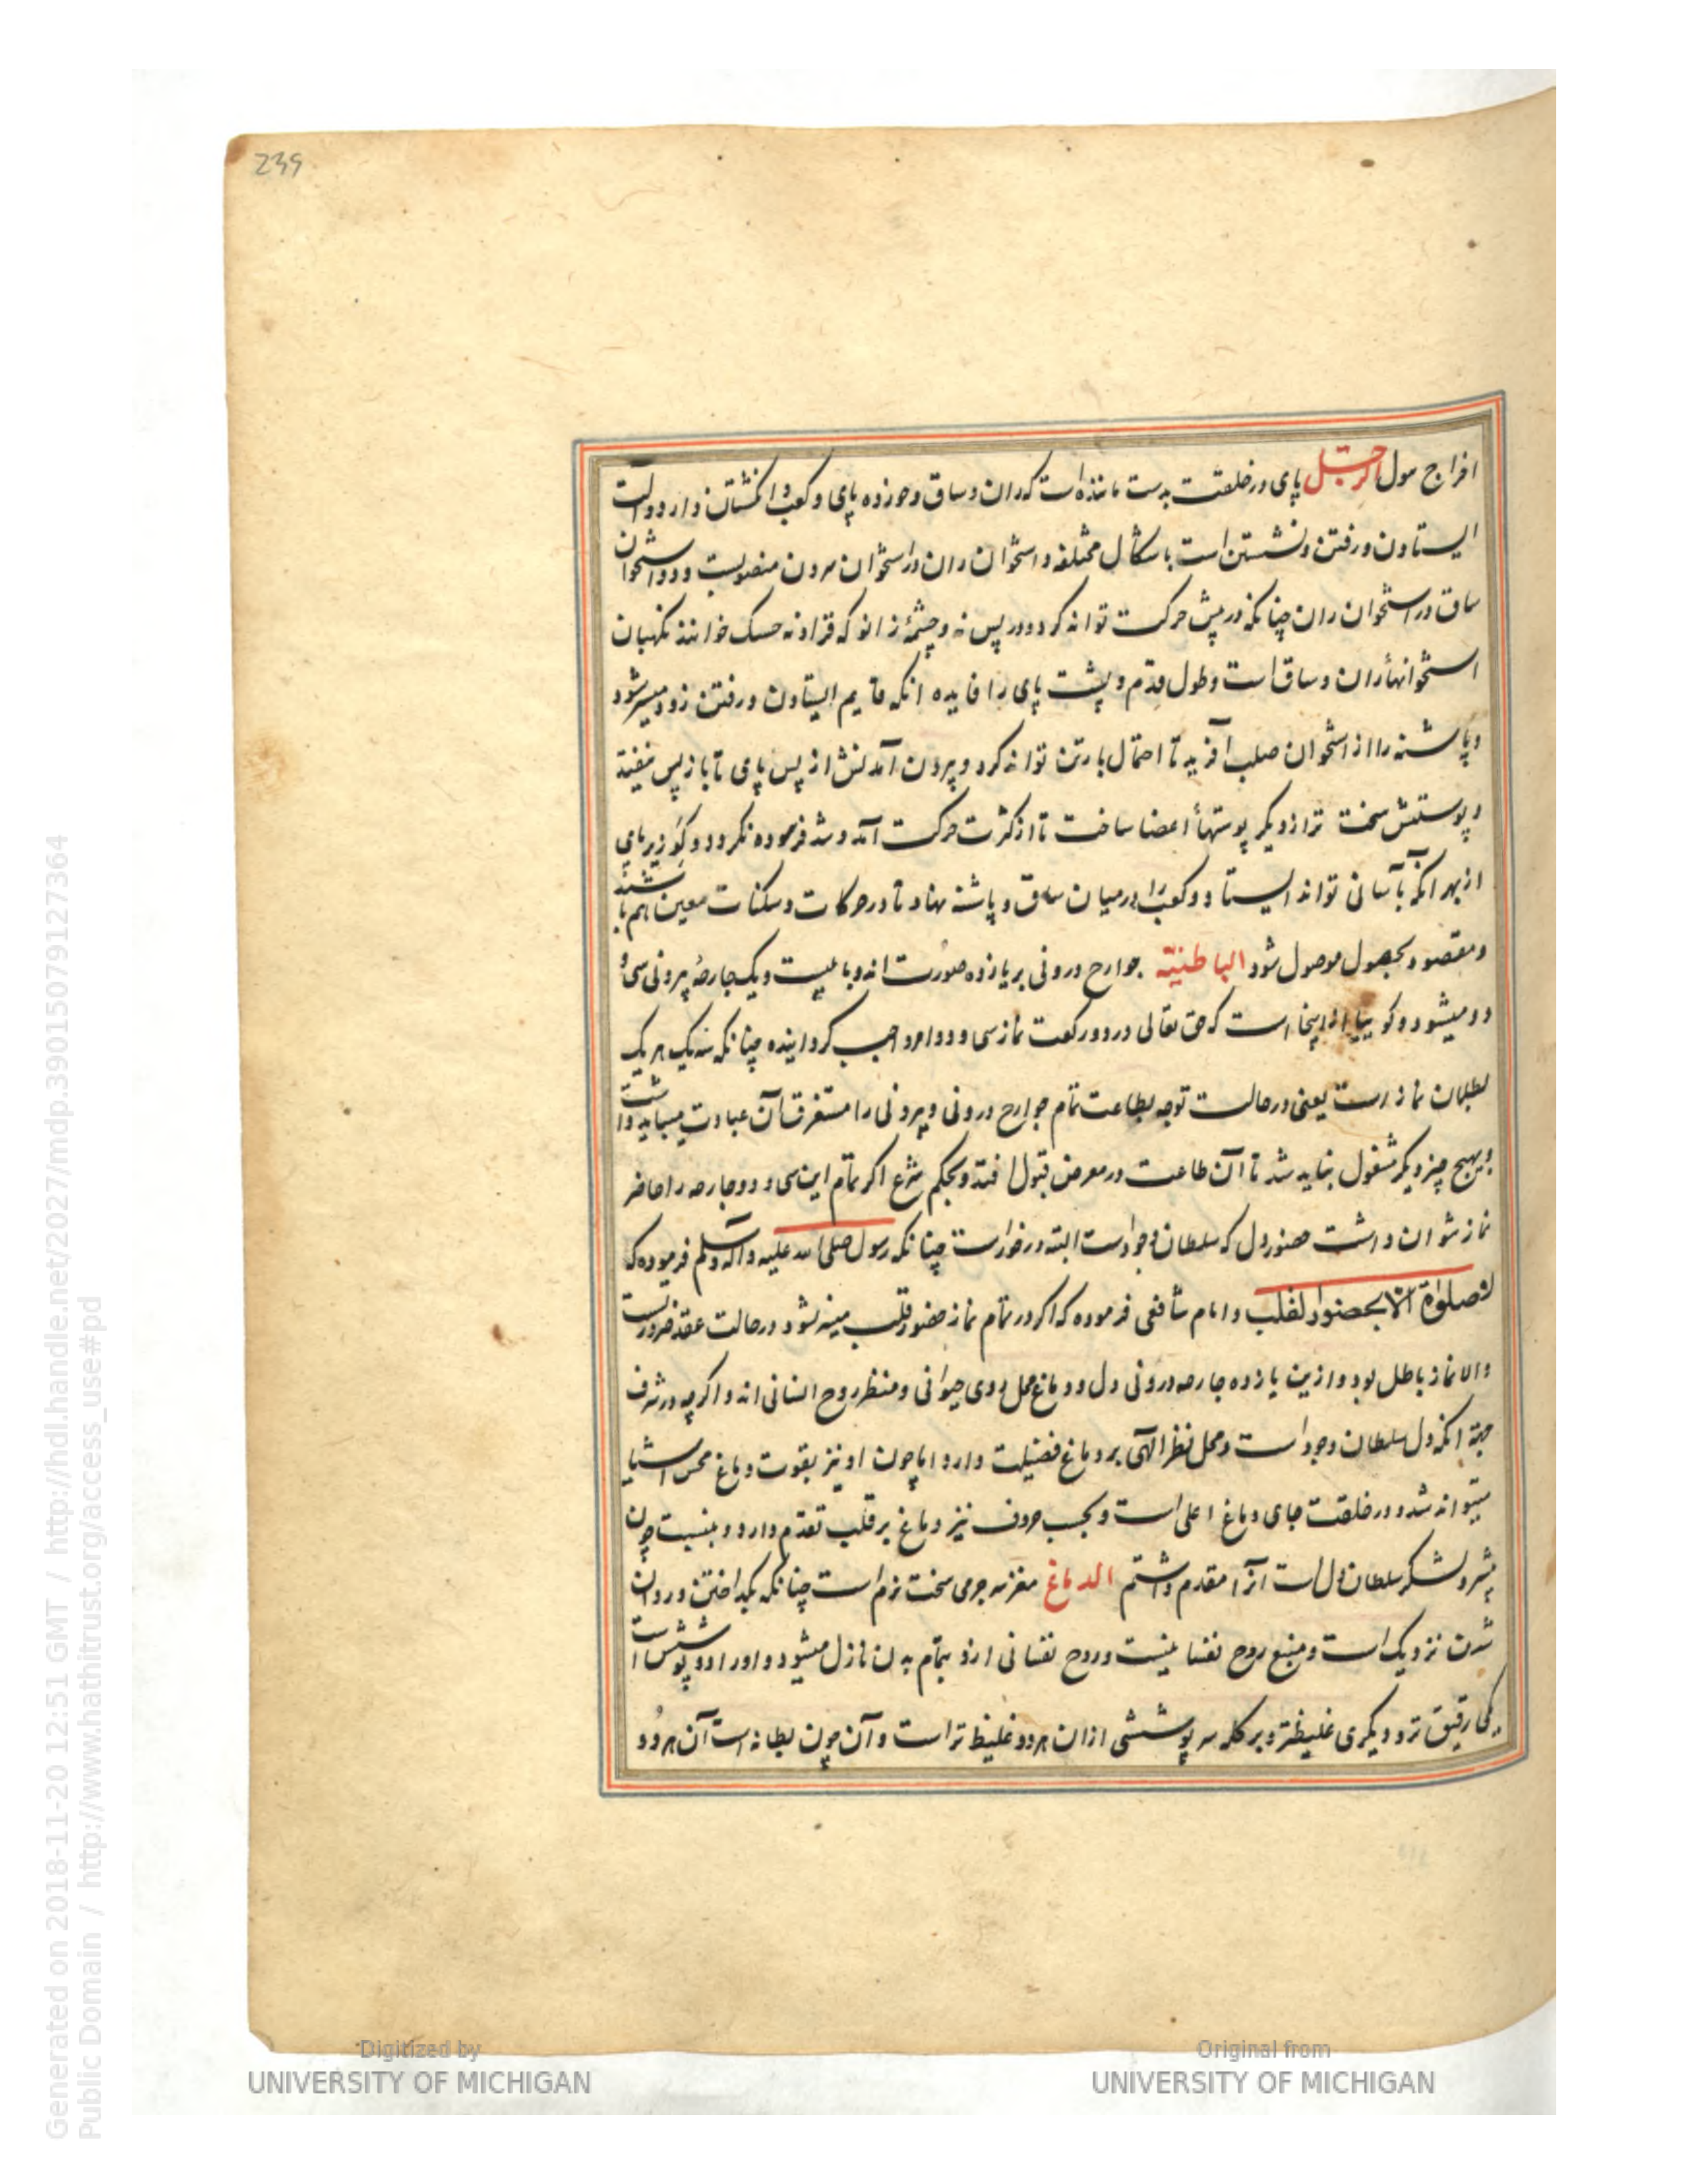 239
افراج مول الرجل پای در خلقت بدست ماننده است که ران و ساق و حوزده پای و کعب و انکشتان دارد و الت
ایستادن و رفتن و نشستن است باشکال مختلفه و استخوان ران در استخوان سرون منصوبست و دو استخوان
ساق در استخوان ران چنانکه در پیش حرکت تواند کرد و در پس نه و چشمهٔ زانو که خوانند نکهبان
استخوانهأ ران و ساق است و طول قدم و پشت پای را فایده انکه قایم ایستادن و رفتن زود میسر شود
و پاشنه را از استخوان صلب آفرید تا احتمال بار تن تواند کرد و بیرون آمدنش از پس پای تا باز پس نیفتد
و پوستش سخت تر از دیکر پوستهأ اعضا ساخت تا از کثرت حرکت آمد و شد فرسوده نکردد و کو زیر پای
از بهر انکه بآسانی تواند ایستاد و کعب را در میان ساق و پاشنه نهاد تا در حرکات و سکنات معین هم باشند
و مقصود بحصول موصول شود الباطنیة جوارح درونی بر یازده صورت اند و با بیست و یک جارحهٔ بیرونی سی و
دو میشود و کوییا از اینجا است که حق تعالی در دو رکعت نماز سی و دو امر واجب کردانیده چنانکه ترک هر یک
بطلان نماز است یعنی در حالت توجه بطاعت تمام جوارح درونی و بیرونی را مستغرق آن عبادت میباید داشت
و بهیچ چیز دیکر مشغول نباید شد تا آن طاعت در معرض قبول افتد و بحکم شرع اکر تمام این سی و دو جارحه را حاضر
نماز نتوان داشت حضور دل که سلطان وجودست البته در خورست چنانکه رسول صلی الله علیه و آله و سلم فرموده که
لا صلوة الا بحضور القلب و امام شافعی فرموده که اکر در تمام نماز حضور قلب میسر نشود در حالت عقد ضرورتست
و الا نماز باطل بود و ازین یازده جارحه درونی دل و دماغ محل روح حیوانی و منظر روح انسانی اند و اکرچه در شرف
جهة انکه دل سلطان وجود است و محل نظر الهی بر دماغ فضیلت دارد اما چون او نیز بقوت دماغ محس اشیا
میتواند شد و در خلقت جای دماغ اعلی است و بحسب حروف نیز دماغ بر قلب تقدم دارد و بنسبت چون
پیشرو لشکر سلطان دل است انرا مقدم داشتم الدماغ مغز سر جرمی سخت نرم است چنانکه بکداختن و روان
شدن نزدیک است و منبع روح نفسانیست و روح نفسانی ازو بتمام بدن نازل میشود و او را دو پوشش است
یکی رقیق تر و دیکری غلیظتر و بر کله سر پوششی ازان هر دو غلیظ تر است و آن چون بطانه است آن هر دو
Digitized by
UNIVERSITY OF MICHIGAN
Original from
UNIVERSITY OF MICHIGAN
Generated on 2018-11-20 12:51 GMT / http://hdl.handle.net/2027/mdp.39015079127364
Public Domain / http://www.hathitrust.org/access_use#pd